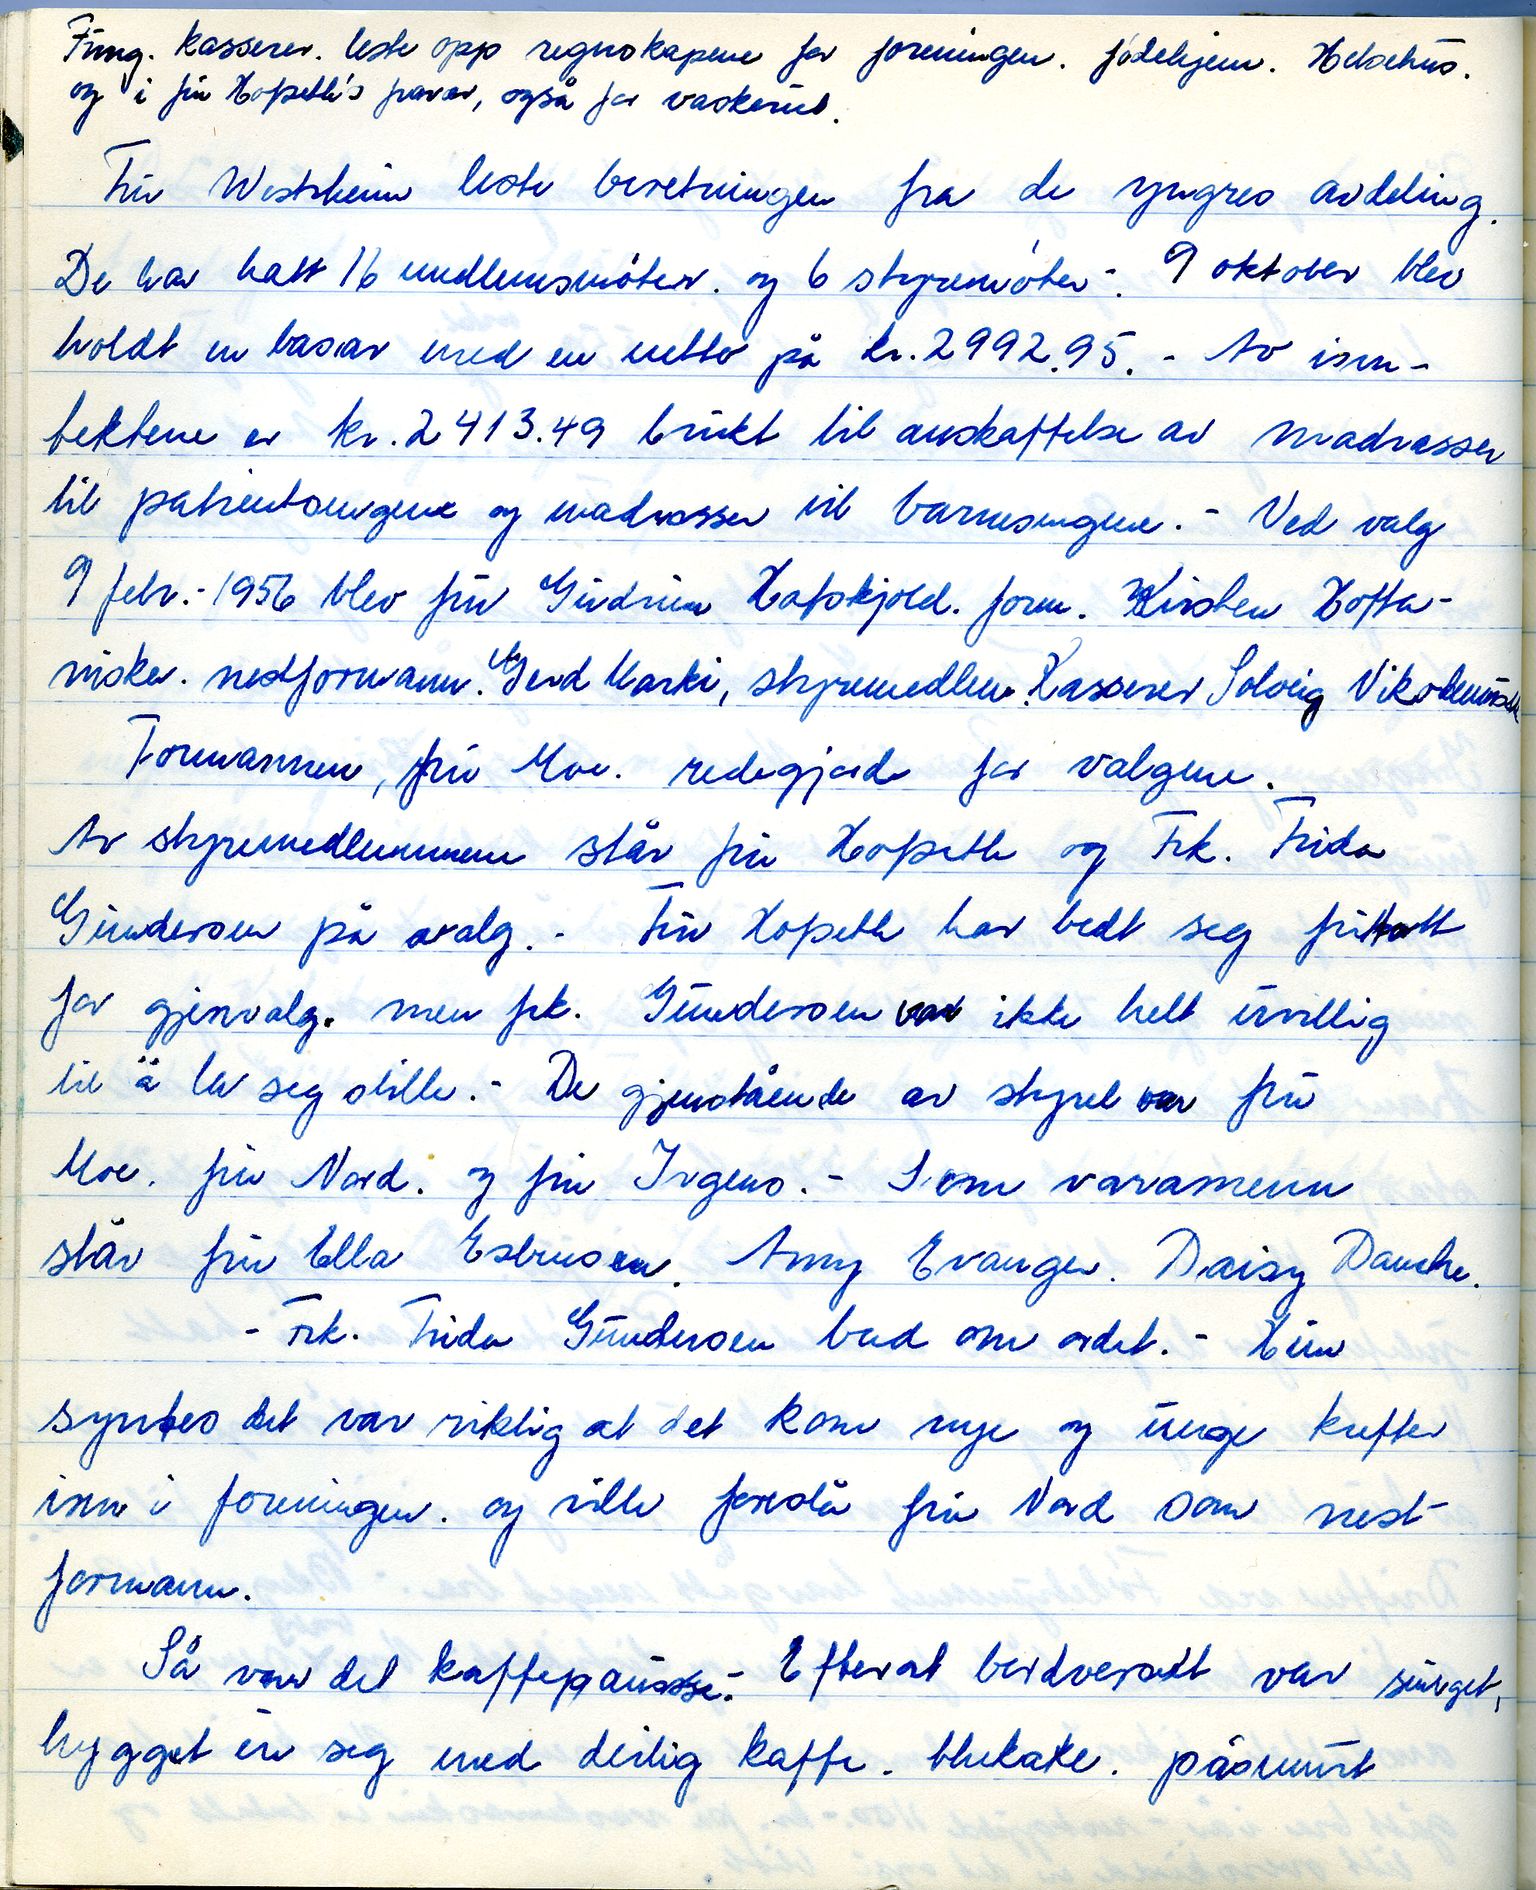 Fung. kasserer. leste opp regnskapene for foreningen. fødehjem. Helsehus.
og i fru Hopseth's fravær, også for vaskeriet.
Fru Westrheim leste beretningen fra de yngres avdeling.
De har hatt 16 medlemsmöter. og 6 styremöter -. 9 oktober blev
holdt en basar med en netto på kr. 2992.95. - Av inn-
tektene er kr. 2413.49 brukt til anskaffelse av madrasser
til patientsengene og madrasser til barnesengene. - Ved valg
9 febr. - 1956 blev fru Gudrun Hafskjold. form. Kirsten Hofta-
nisker. nestformann. Gerd Marki, styremedlem. Kasserer Solveig
Formannen, fru Moe. redegjorde for valgene.
Av styremedlemmene står fru Hopseth og Frk. Frida
Gundersen på valg. - Fru Hopseth har bedt seg fritatt
for gjenvalg. men frk. Gundersen var ikke helt uvillig
til å la seg stille. - De gjenstående av styret var fru
Moe. fru Nord. og fru Irgens. - Som varamenn
står fru Ella Esbensen. Anny Evanger. Daisy Dancke.
- Frk. Frida Gundersen bad om ordet. - Hun
syntes det var riktig at det kom nye og unge krefter
inn i foreningen. og ville foreslå fru Nord som nest-
formann.
Så var det kaffepausse. - Efter at bordverset var sunget,
hygget en seg med deilig kaffe. blutkake. påsmurt